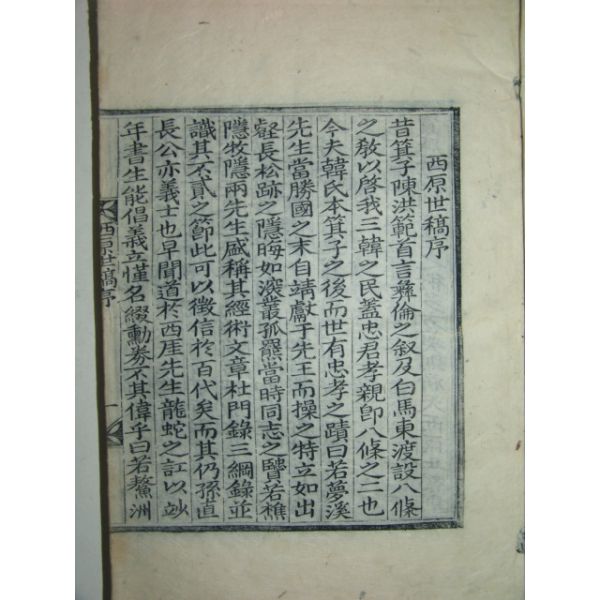 西原世稿序
昔箕子陳洪範首言彝倫之叙及白馬東渡設八條
之敎以啓我三韓之民蓋忠君孝親卽八條之二也
今夫韓氏本箕子之後而世有忠孝之蹟曰若夢溪
先生當勝國之末自靖獻于先王而操之特立如出
壑長松跡之隱晦如深叢孤羆當時同志之賢若樵
隱牧隱兩先生盛稱其經術文章杜門錄三綱錄並
識其不貳之節此可以徵信於百代矣而其仍孫直
長公亦義士也早聞道於西厓先生龍蛇之訌以妙
年書生能倡義立慬名綴勳券不其偉乎曰若鰲洲
西原世稿序
一